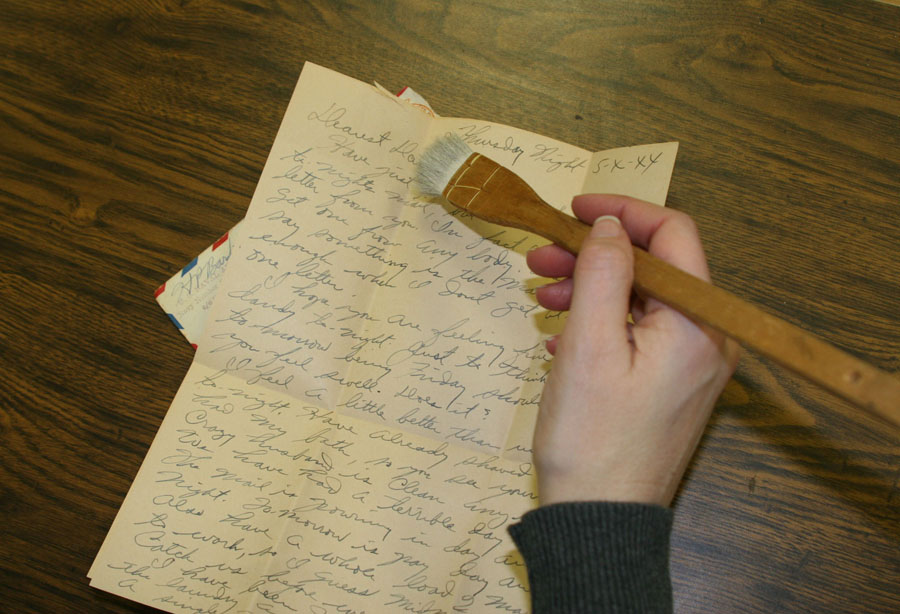 Thursday Night 5-X-44
Dearest
Have just
to-nights mail,
letter from you. I'm
get one from any body
say something is the
enough when I don't get at
one letter.
I hope you are feeling fine
dandy to-night. Just to think
to-morrow being Friday
you feel swell. Does it?
I feel a little better than
to-night, Have already shaved
had my bath, so you see your
Crazy Husband is clean any
We have had a terrible day
The mail is pouring in day
night. To-morrow is pay day
Also have a whole load
to work, so I guess
Catch is before
I have been
the laundry
a single